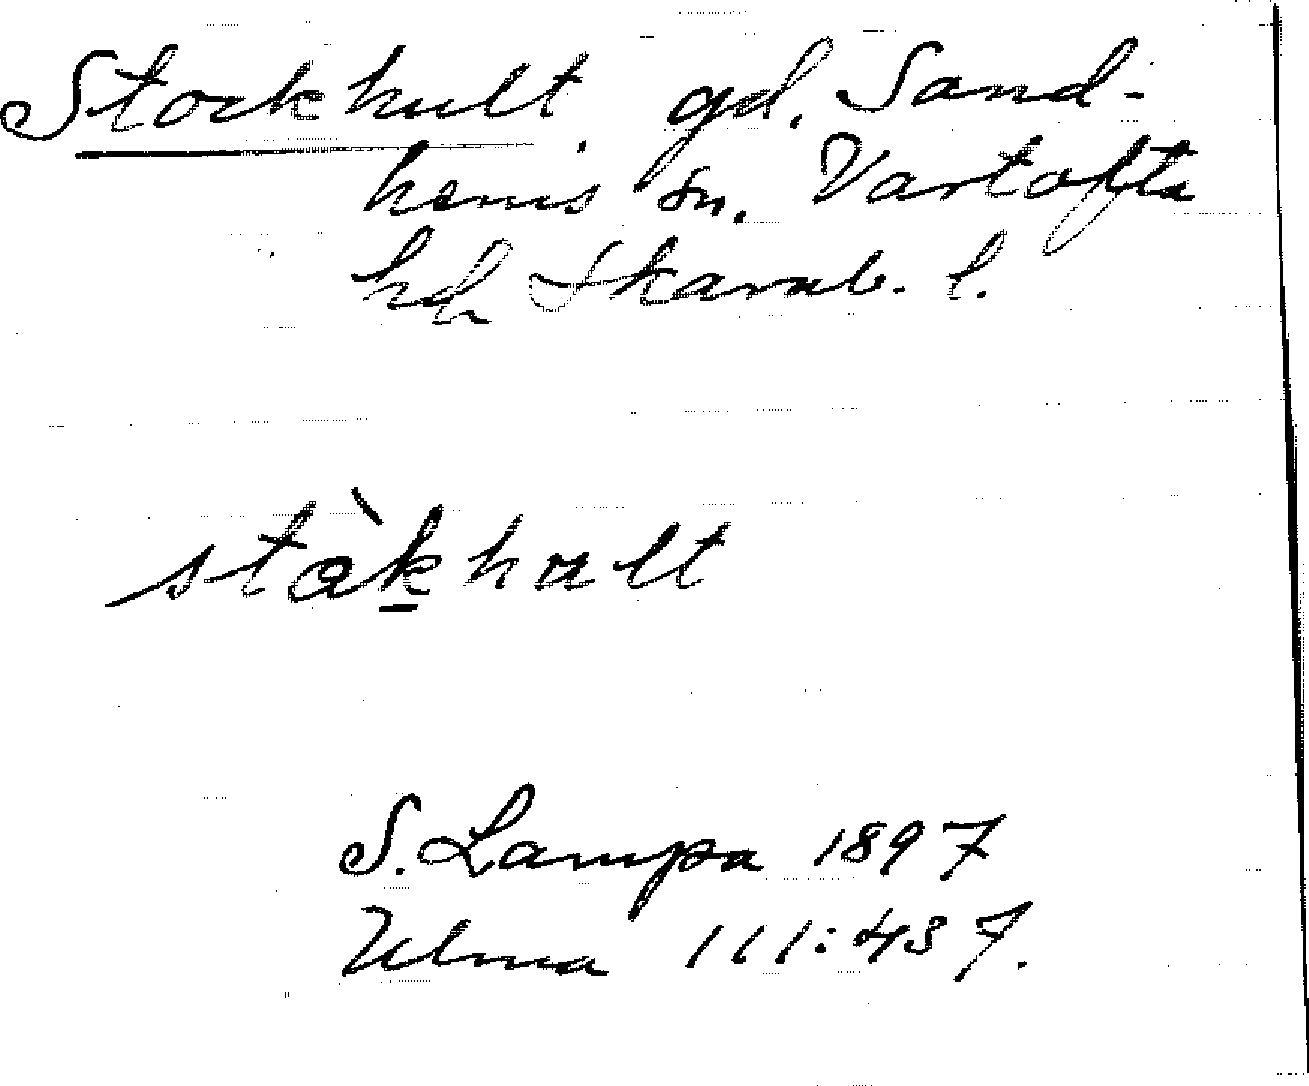 Stockhult, gd, Sand-
hems sn. Vartofta
hd Skarab. l.
stàkhult
S. Lampa 1897
Ulma 111:437.